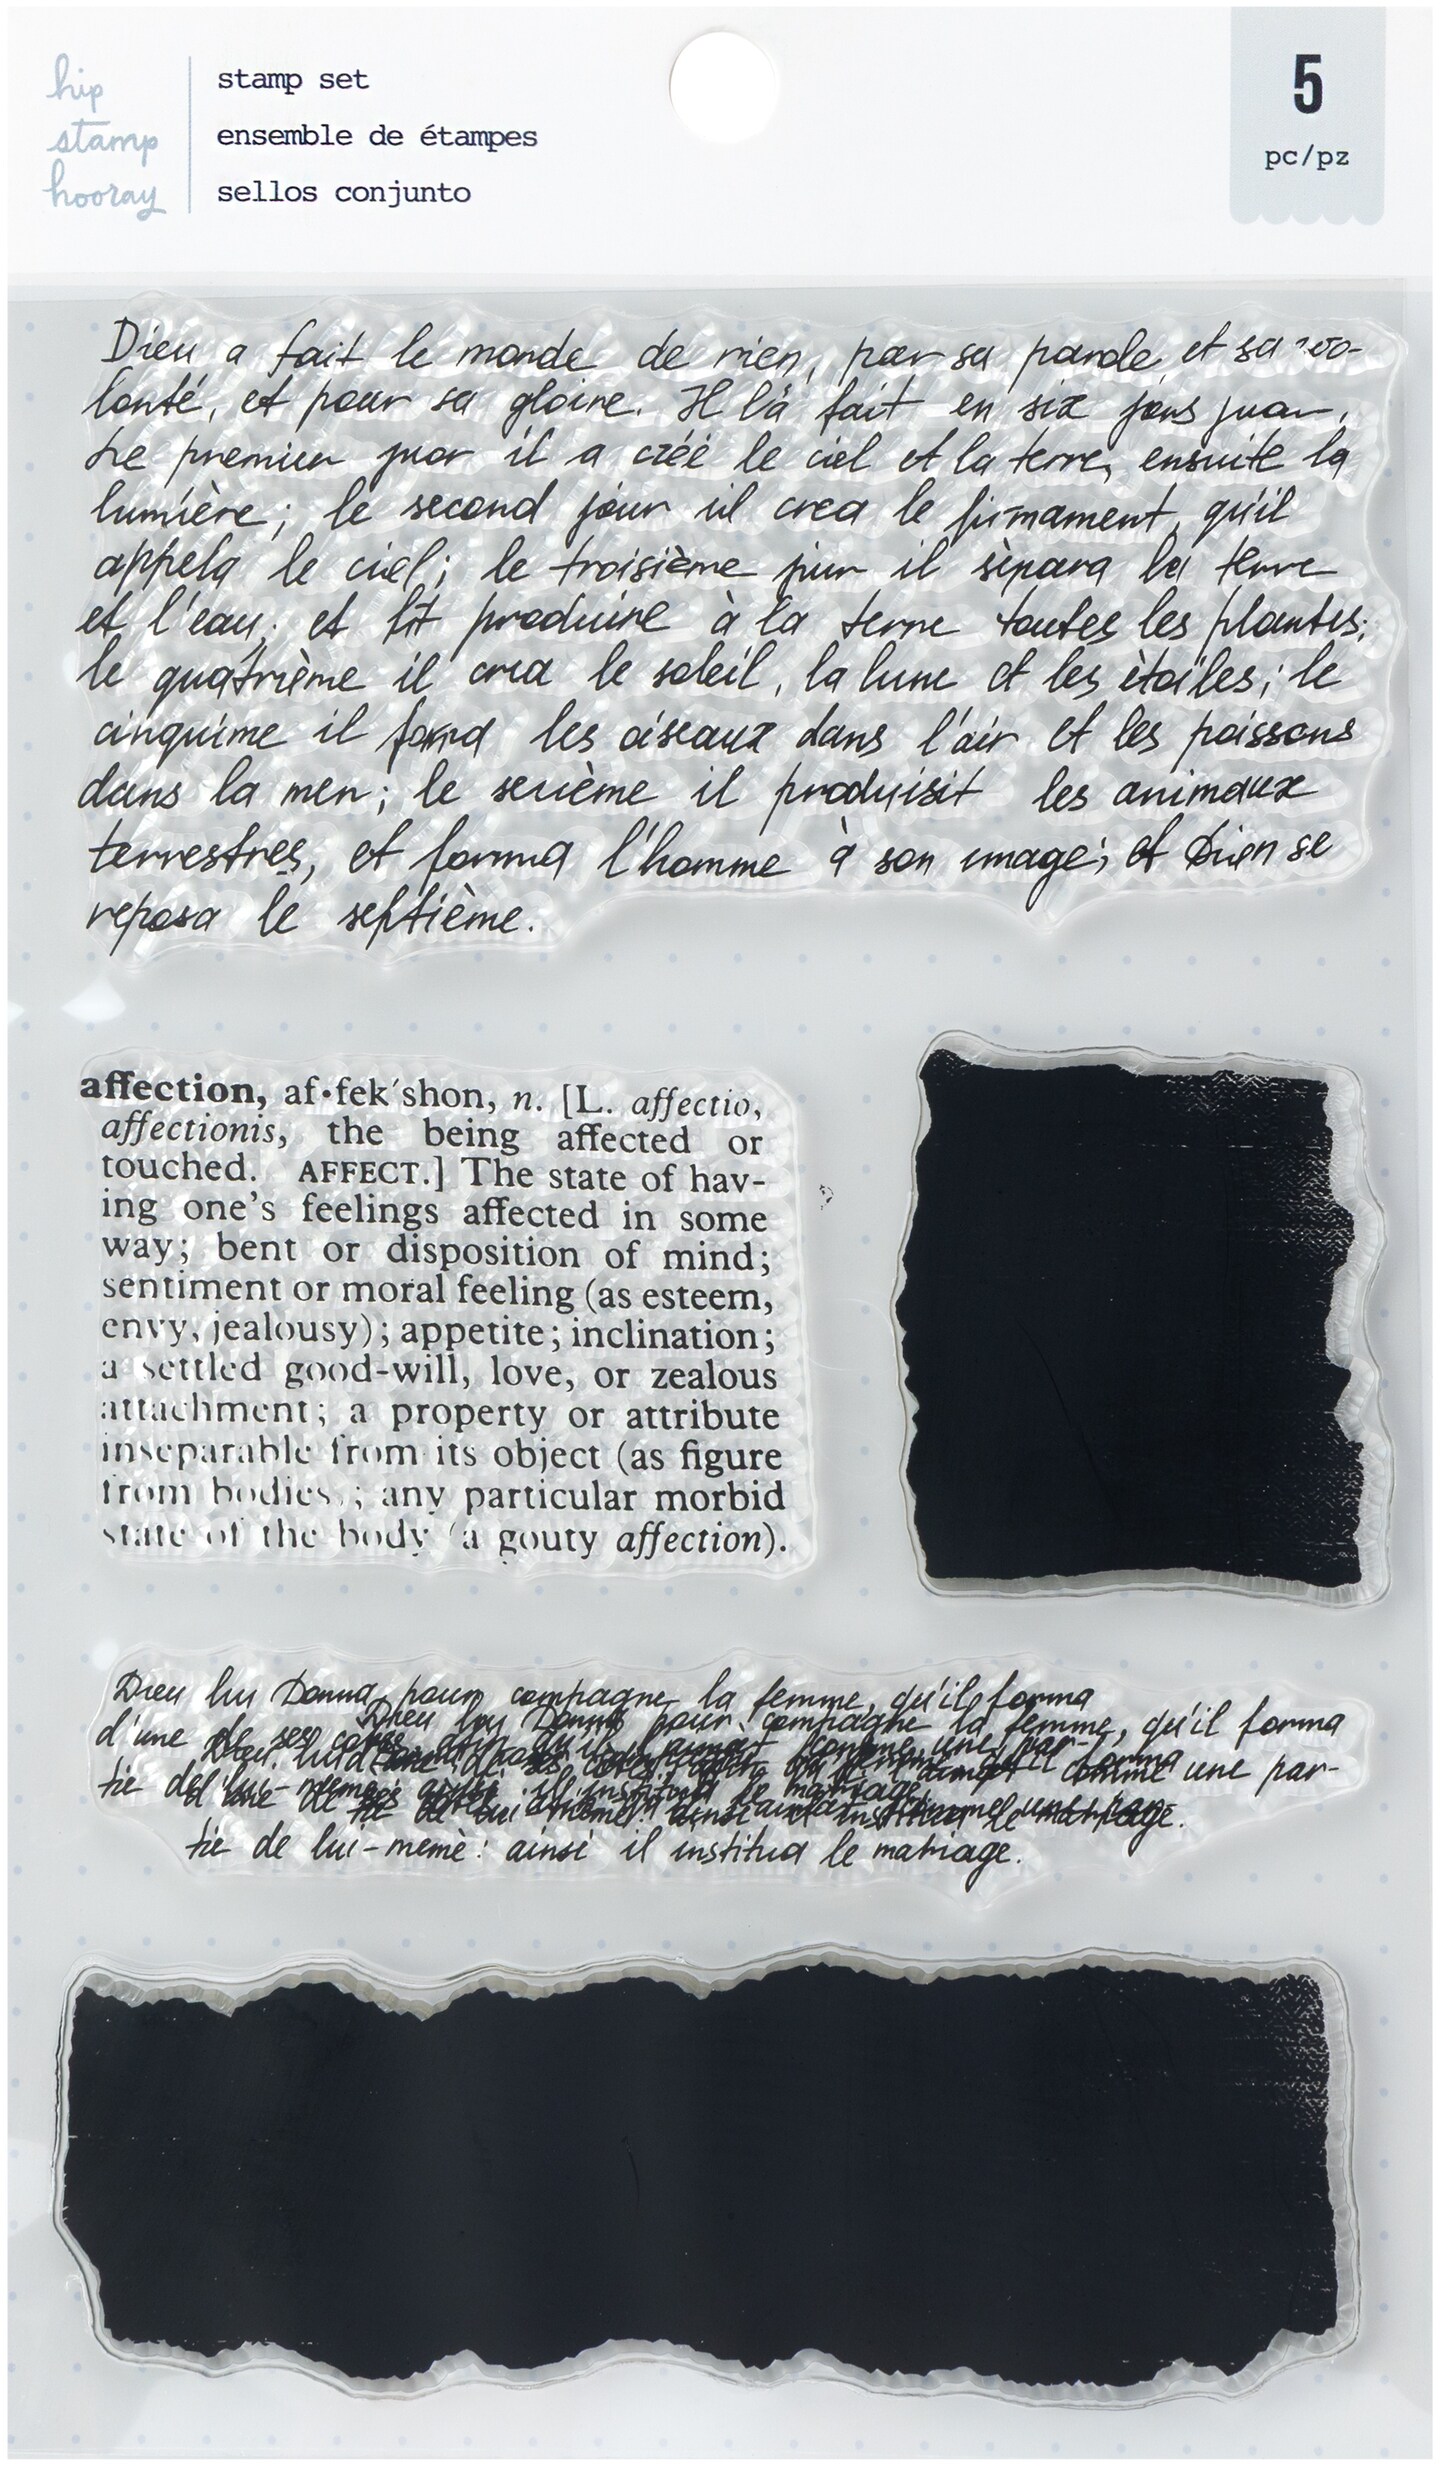 hip
stamp
hooray
stamp set
ensemble de étampes
sellos conjunto
5
pc/pz
Dieu a fait le monde de rien, par sa parole, et sa vo-
lonté, et pour sa gloire. Il l'a fait en six jours
Le premier il a créé le ciel et la terre, ensuite la
lumière; le second jour il crea le firmament, qu'il
appela le ciel; le troisième jour il sèpara la terre
et l'eau; et fit produire à la terre toutes les plantes;
le quatrième il crea le soleil, la lune et les ètoiles; le
cinquime il forma les oiseaux dans l'air et les poissons
dans la mer; le sexième il produisit les animaux
terrestres, et forma l'homme à son image; et Dieu se
reposa le septième.
affection, af•fek′shon, n. [L. affectio,
affectionis, the being affected or
touched. AFFECT.] The state of hav-
ing one's feelings affected in some
way; bent or disposition of mind;
sentiment or moral feeling (as esteem,
envy, jealousy); appetite; inclination;
a settled good-will, love, or zealous
attachment; a property or attribute
inseparable from its object (as figure
from bodies); any particular morbid
state of the body (a gouty affection).
Dieu lui Donna pour compagne la femme, qu'il forma
Dieu lui Donna pour compagne la femme, qu'il forma
d'une de ses
comme une par-
tie de lui-meme
tie de lui-memè: ainsi il institua le mariage.